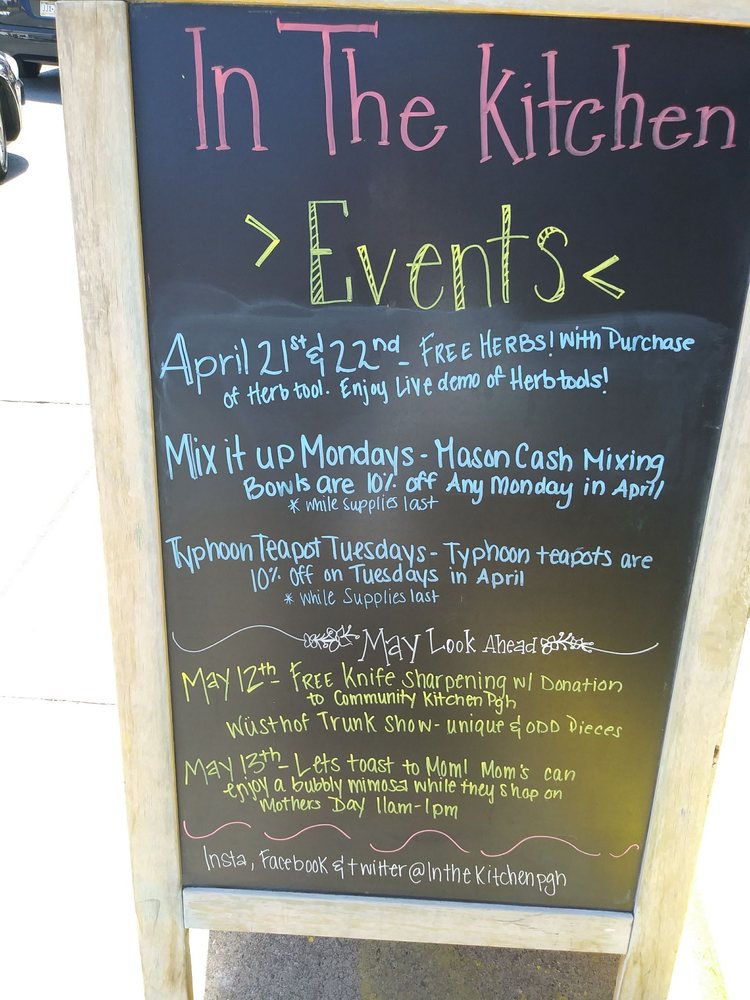 In The Kitchen
> Events <
April 21st & 22nd - FREE HERBS! With Purchase
of Herb tool. Enjoy Live demo of Herb tools!
Mix it up Mondays - Mason Cash Mixing
Bowls are 10% off Any Monday in April
* while supplies last
Typhoon Teapot Tuesdays - Typhoon teapots are
10% Off on Tuesdays in April
* while Supplies last
May Look Ahead
May 12th - FREE Knife Sharpening w/ Donation
to Community Kitchen Pgh
Wüsthof Trunk Show - unique & ODD Pieces
May 13th - Lets toast to Mom! Mom's can
enjoy a bubbly mimosa while they shop on
Mothers Day 11am-1pm
Insta, Facebook & twitter @InthekitchenPgh